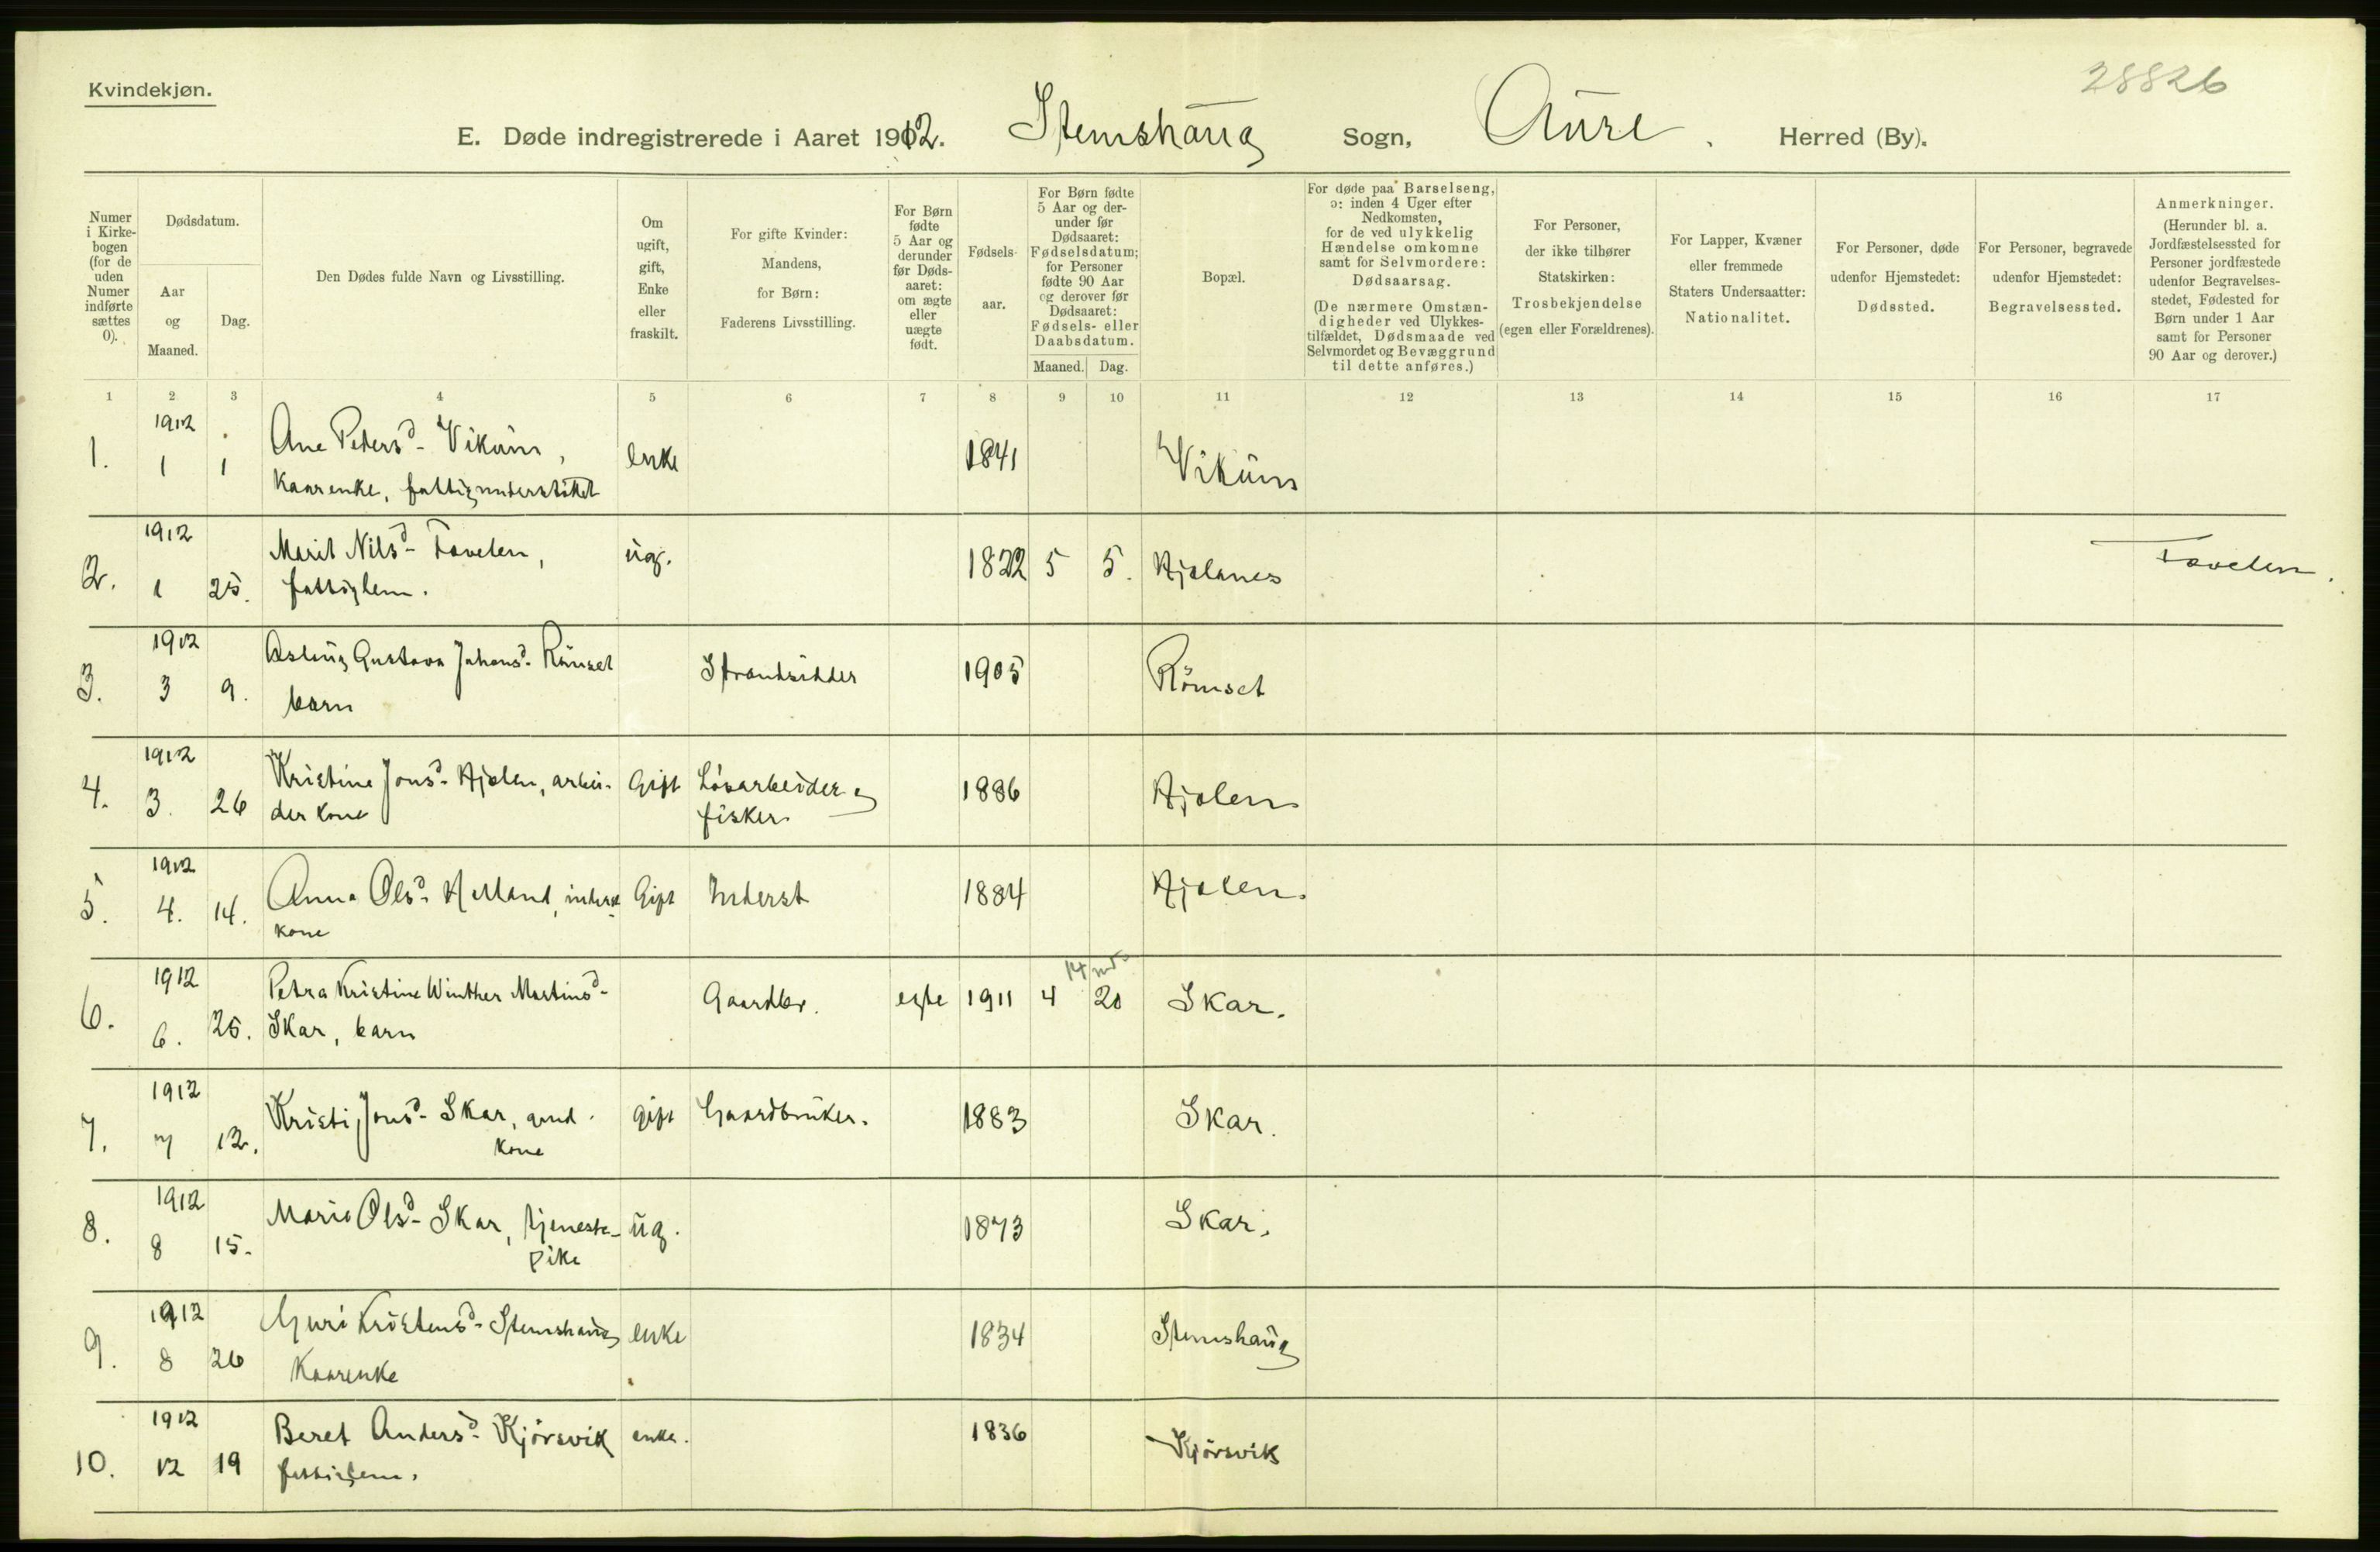 Kvindekjøn.
28826
E. Døde indregistrerede i Aaret 1912. Stemshaug Sogn, Aure. Herred (By).
Numer i Kirkebogen (for de uden Numer indførte sættes 0).
Dødsdatum.
Aar og Maaned.
Dag.
Den Dødes fulde Navn og Livsstilling.
Om ugift, gift, Enke eller fraskilt.
For gifte Kvinder: Mandens, for Børn: Faderens Livsstilling.
For Børn fødte 5 Aar og derunder før Dødsaaret: om ægte eller uægte født.
Fødselsaar.
For Børn fødte 5 Aar og derunder før Dødsaaret: Fødselsdatum; for Personer fødte 90 Aar og derover før Dødsaaret: Fødsels- eller Daabsdatum.
Maaned. Dag.
Bopæl.
For døde paa Barselseng, ɔ: inden 4 Uger efter Nedkomsten, for de ved ulykkelig Hændelse omkomne samt for Selvmordere: Dødsaarsag.
(De nærmere Omstændigheder ved Ulykkestilfældet, Dødsmaade ved Selvmordet og Bevæggrund til dette anføres.)
For Personer, der ikke tilhører Statskirken: Trosbekjendelse (egen eller Forældrenes).
For Lapper, Kvæner eller fremmede Staters Undersaatter: Nationalitet.
For Personer, døde udenfor Hjemstedet: Dødssted.
For Personer, begravede udenfor Hjemstedet: Begravelsessted.
Anmerkninger.
(Herunder bl. a. Jordfæstelsessted for Personer jordfæstede udenfor Begravelsesstedet, Fødested for Børn under 1 Aar samt for Personer 90 Aar og derover.)
1 2 3 4 5 6 7 8 9 10 11 12 13 14 15 16 17
1. 1912 1 1 Ane Petersd- Vikum, enke 1841 Vikum
Kaarenke, fattigunderstöttet
2. 1912 1 25. Marit Nilsd- Tavelen, ug. 1822 5 5. Mjelanes Tavelen.
fattiglem.
3. 1912 3 9. Aslaug Gustava Johansd- Römset Strandsidder 1905 Römset
barn
4. 1912 3. 26 Kristine Jonsd- Mjelen, arbei- Gift Lösarbeider og 1886 Mjolen
der kone fisker
5. 1912 4. 14. Anna Olsd- Helland, inderst Gift Inderst 1884 Mjolen.
kone
14 md
6. 1912 6. 25. Petra Kristine Winther Martinsd- Gaardbr. egte 1911 4 20 Skar.
Skar, barn
7. 1912 7 12. Kristi Jonsd- Skar, gmd. gift Gaardbruker. 1883 Skar.
kone
8. 1912 8 15. Marie Olsd- Skar, tjeneste- ug. 1873 Skar.
pike
9. 1912 8 26 Guri Kristensd- Stemshaug enke 1834 Stemshaug
Kaarenke
10. 1912 12 19 Beret Andersd- Kjörsvik enke. 1836 Kjörsvik
fattiglem.